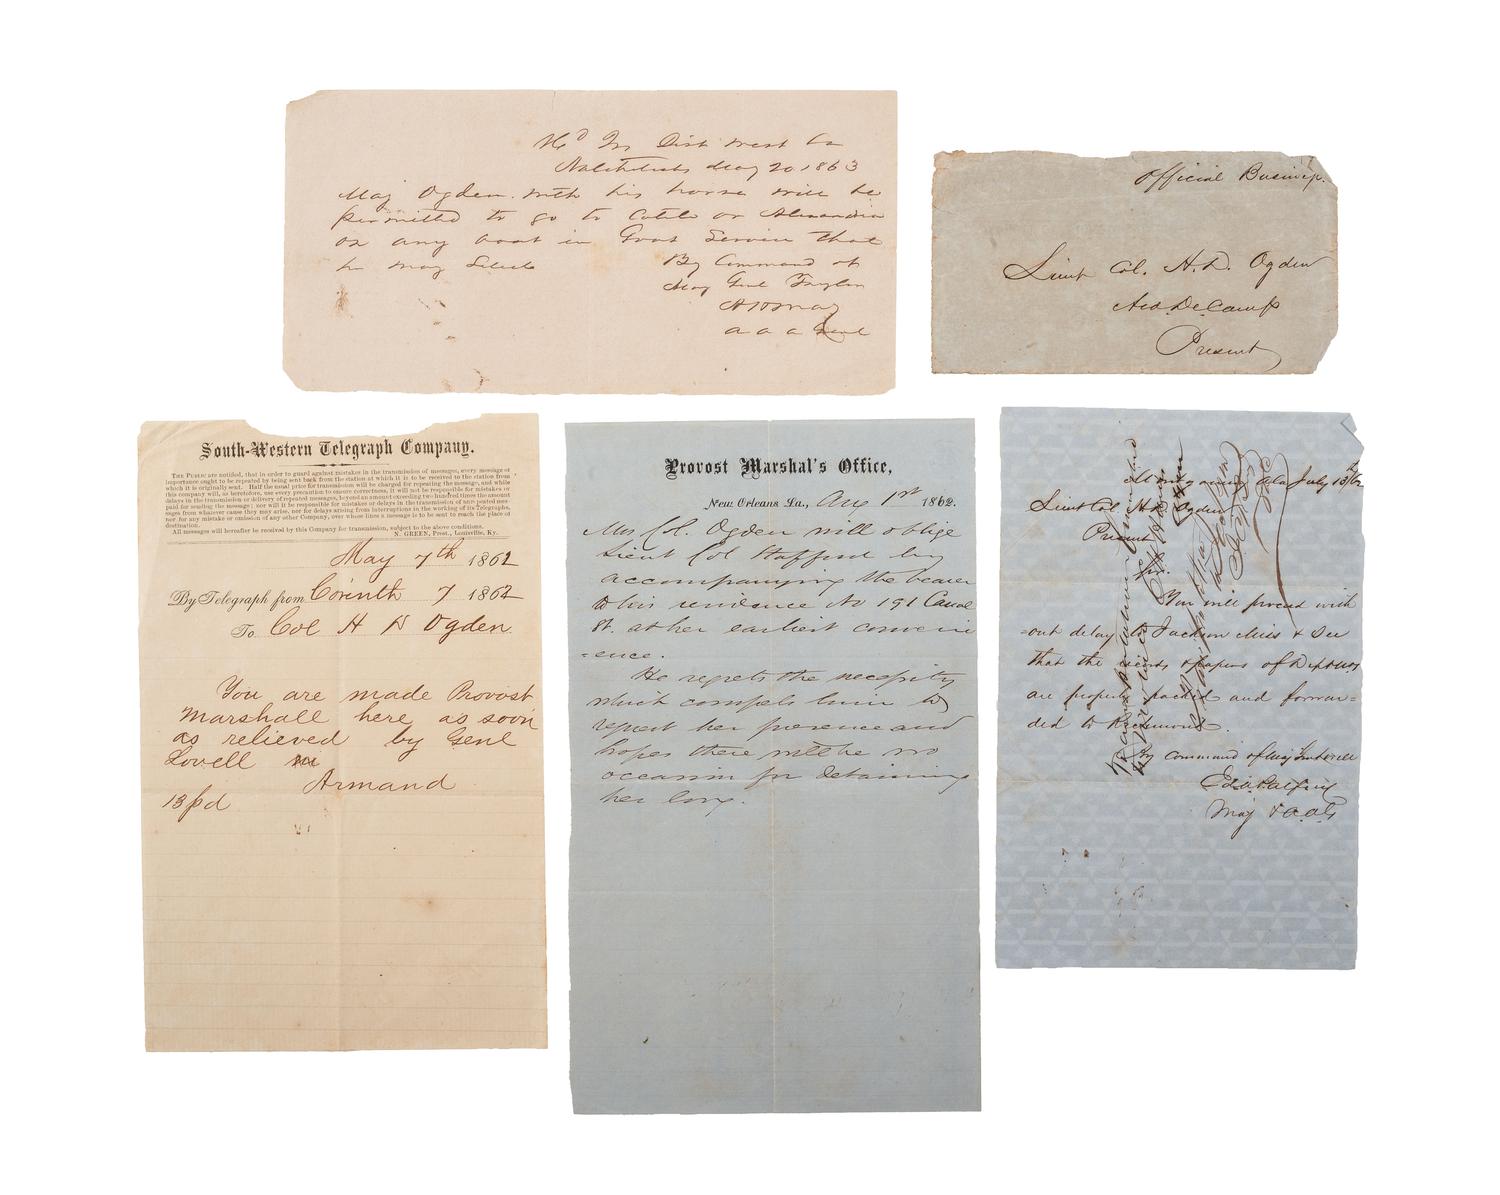 Hd Qrs Dist West La
Natchitoches May 20 1863
Maj Ogden with his horse will be
permitted to go to Cotile or Alexandria
on any boat in Govt Service that
he may Select
By Command of
Maj Genl Taylor
A H May
a a a Genl
Official Business.
Lieut Col. H. D. Ogden
Aid. De. Camp
Present
South-Western Telegraph Company.
The Public are notified, that in order to guard against mistakes in the transmission of messages, every message of
importance ought to be repeated by being sent back from the station at which it is to be received to the station from
which it is originally sent. Half the usual price for transmission will be charged for repeating the message, and while
this company will, as heretofore, use every precaution to ensure correctness, it will not be responsible for mistakes or
delays in the transmission or delivery of repeated messages, beyond an amount exceeding two hundred times the amount
paid for sending the message; nor will it be responsible for mistakes or delays in the transmission of unrepeated mes-
sages from whatever cause they may arise, nor for delays arising from interruptions in the working of its Telegraphs,
nor for any mistake or omission of any other Company, over whose lines a message is to be sent to reach the place of
destination.
All messages will hereafter be received by this Company for transmission, subject to the above conditions.
N. GREEN, Prest., Louisville, Ky.
May 7th 1862
By Telegraph from Corinth 7 1862
To Col H D Ogden.
You are made Provost
Marshall here as soon
as relieved by Genl
Lovell
Armand
13 pd
Provost Marshal's Office,
New Orleans La., Aug 1st 1862.
Mrs Col. Ogden will oblige
Lieut Col Stafford by
accompanying the bearer
to his residence No 191 Canal
St. at her earliest conveni
=ence.
He regrets the necessity
which compels him to
request her presence and
hopes there will be no
occasion for detaining
her long.
July 13/62
Lieut Col H. D. Ogden
Present
Sir.
You will proceed with
=out delay to Jackson Miss & See
that the records & papers of
are properly packed and forwar=
ded to Richmond
By command of Maj Genl Lovell
Maj & A.A.G